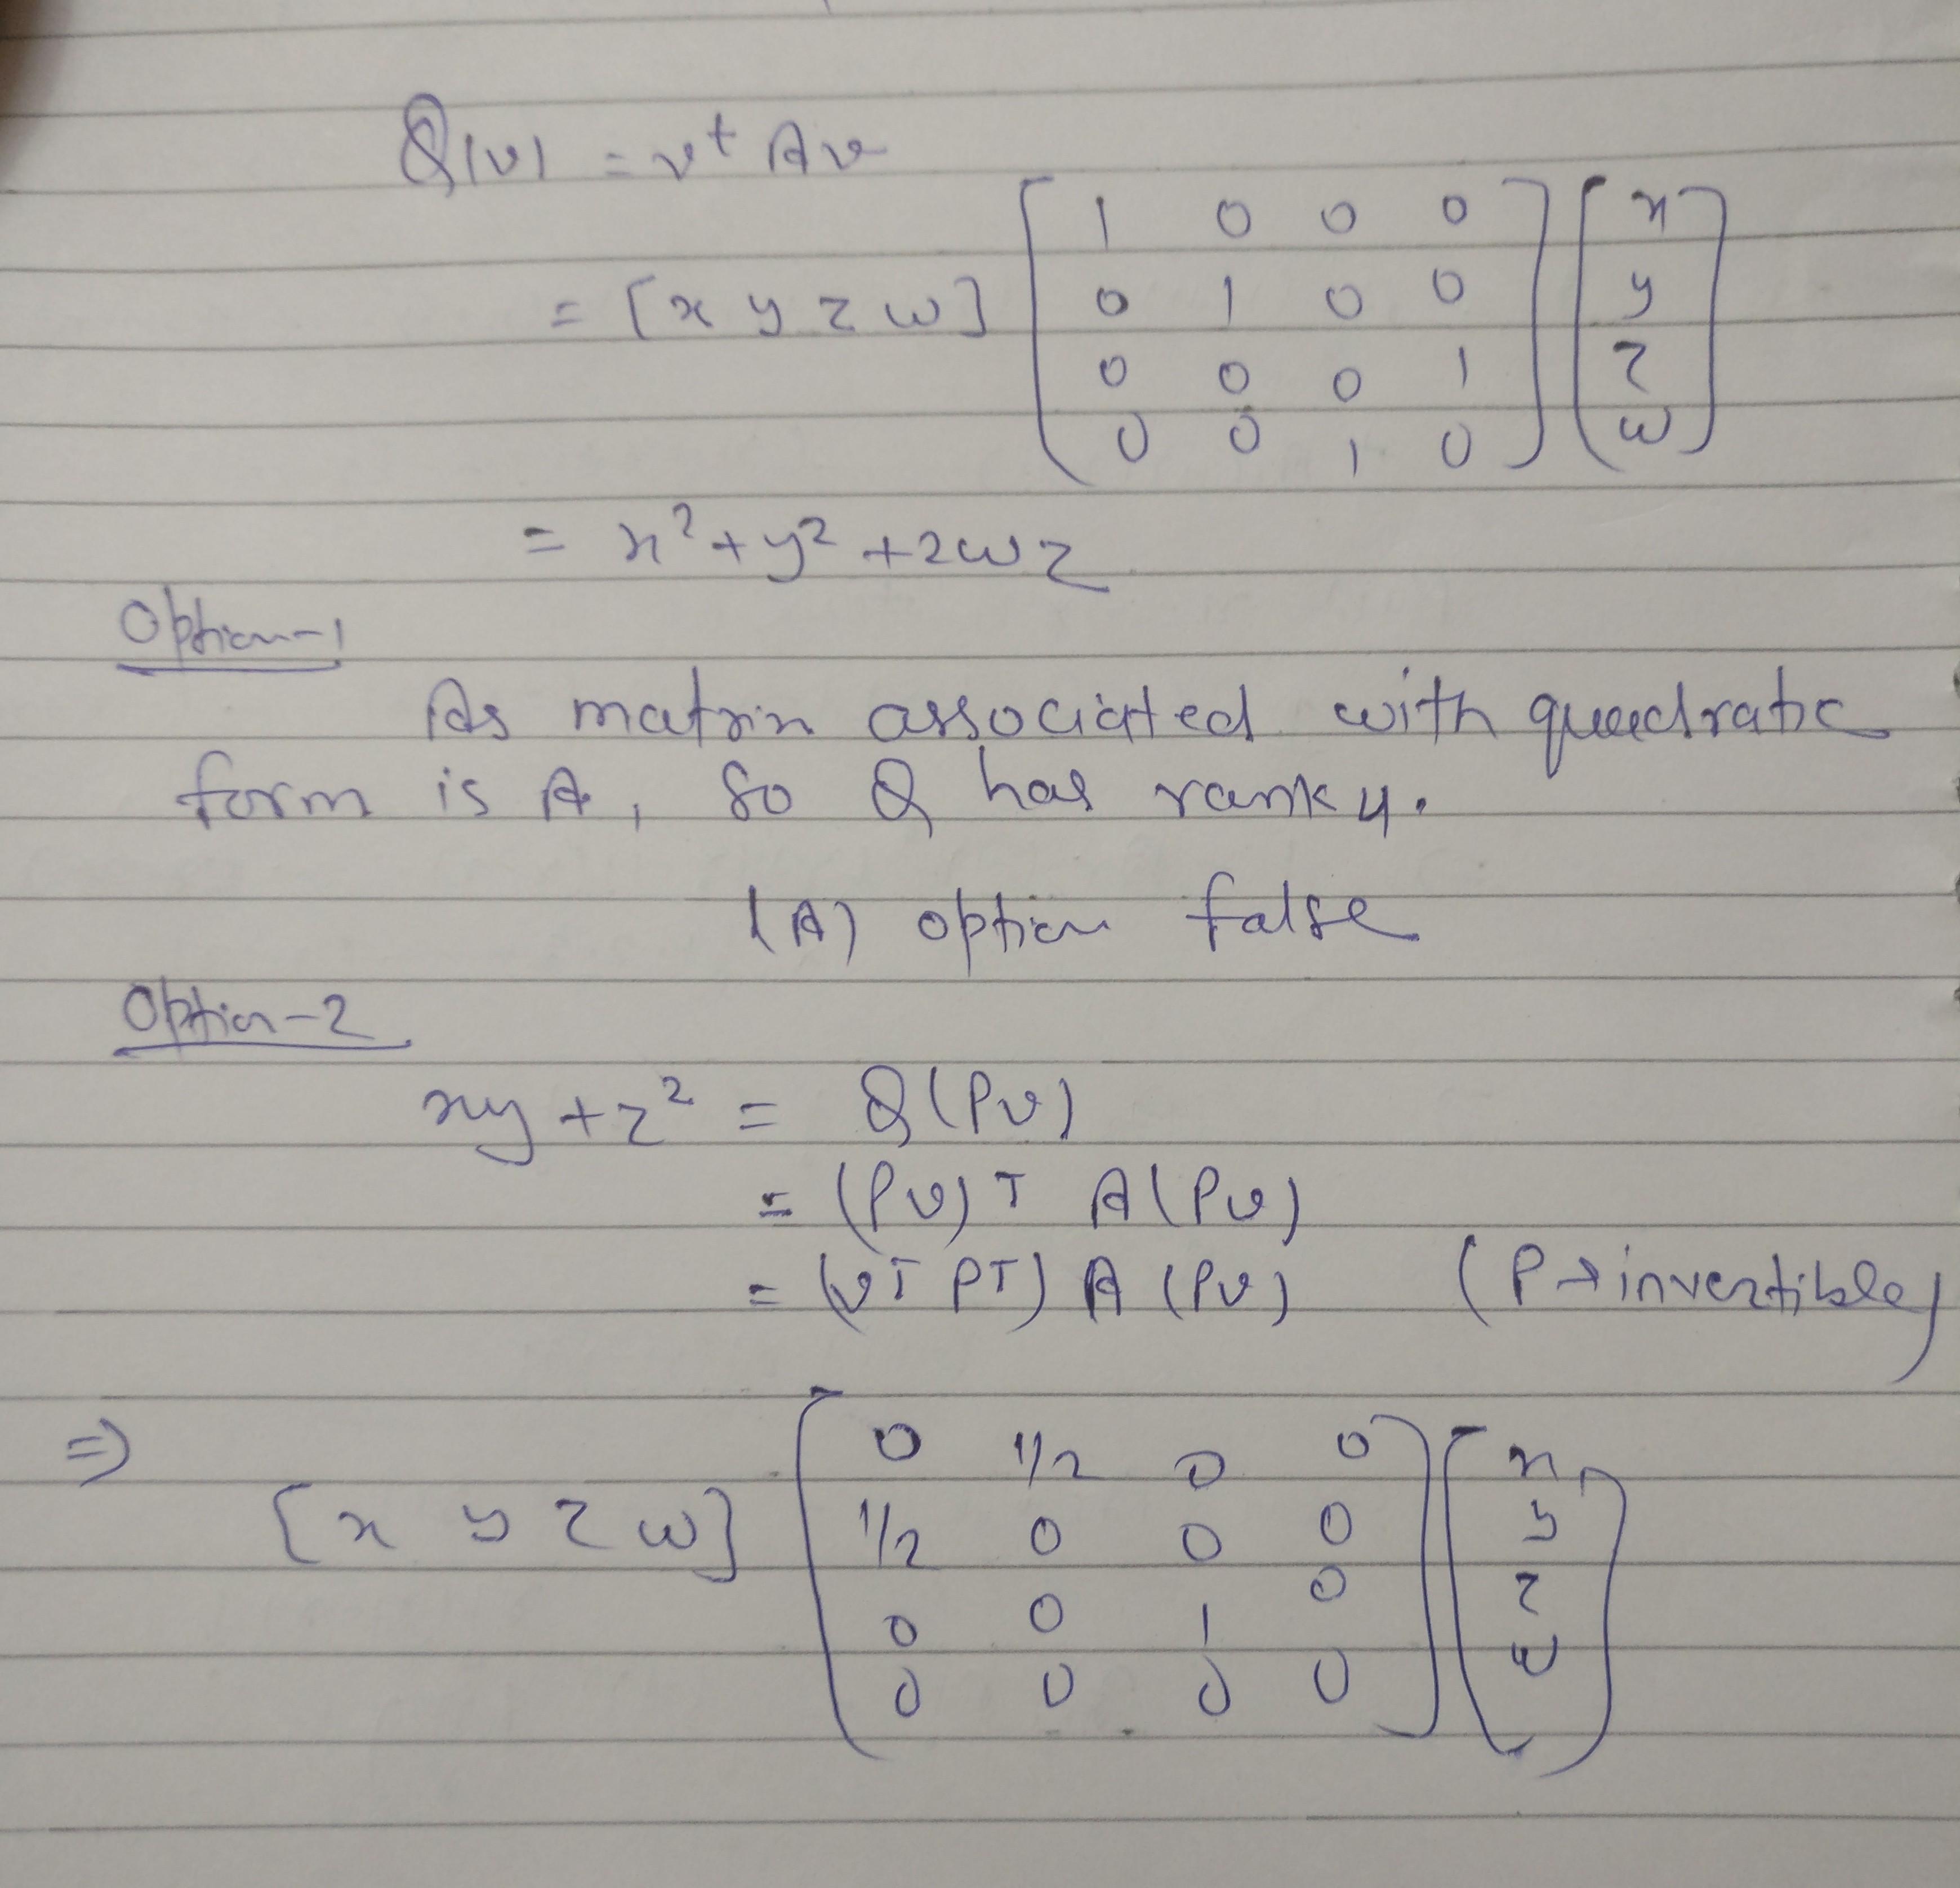 Q(v) = v^t Av
= [x y z w] [1 0 0 0; 0 1 0 0; 0 0 0 1; 0 0 1 0] [x; y; z; w]
= x² + y² + 2wz
Option-1
As matrix associated with quadratic
form is A, So Q has rank 4.
(A) option false
Option-2
xy + z² = Q(Pv)
= (Pv)^T A(Pv)
= (v^T P^T) A (Pv) (P → invertible)
⇒ [x y z w] [0 1/2 0 0; 1/2 0 0 0; 0 0 1 0; 0 0 0 0] [x; y; z; w]